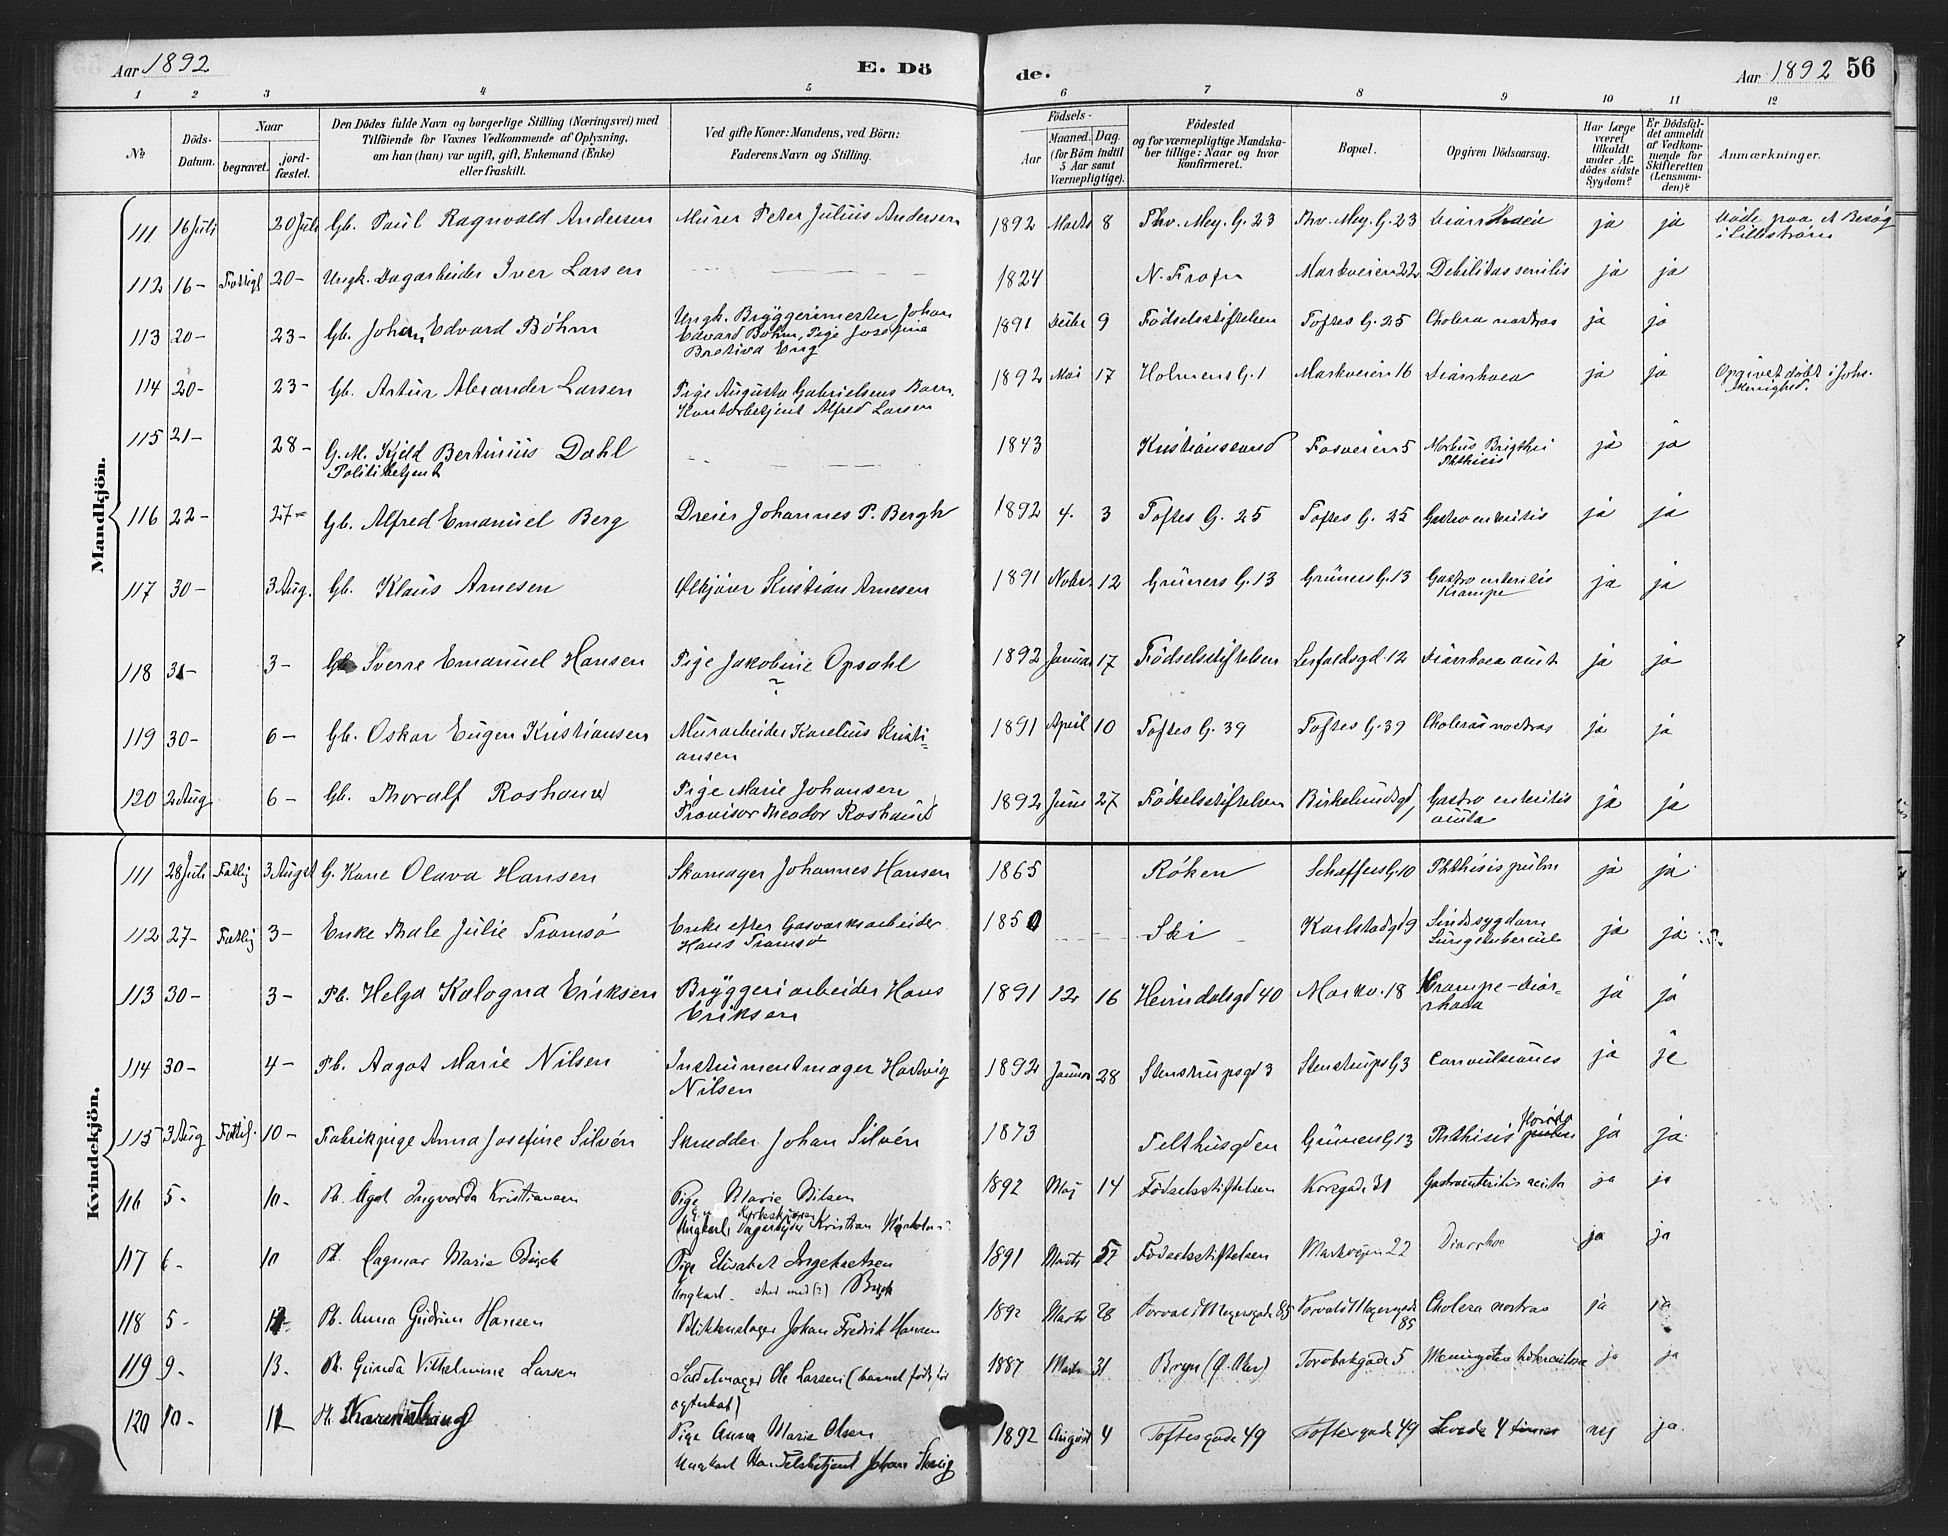 Aar 1892
E. Dö
de.
Aar 1892 56
1 2 3 4 5 6 7 8 9 10 11 12
No
Döds-Datum.
Naar
begravet.
jord-fæstet.
Den Dödes fulde Navn og borgerlige Stilling (Næringsvei) med
Tilföiende for Voxnes Vedkommende af Oplysning,
om han (hun) var ugift, gift, Enkemand (Enke)
eller fraskilt.
Ved gifte Koner: Mandens, ved Börn:
Faderens Navn og Stilling.
Födsels-
Aar
Maaned. Dag.
(for Börn indtil
5 Aar samt
Værnepligtige).
Födested
og for værnepligtige Mandska-
ber tillige: Naar og hvor
konfirmeret.
Bopæl.
Opgiven Dödsaarsag.
Har Læge
været
tilkaldt
under Af-
dödes sidste
Sygdom?
Er Dödsfal-
det anmeldt
af Vedkom-
mende for
Skifteretten
(Lensman-
den)?
Anmærkninger.
Mandkjön.
111 16 Juli 20 Juli Gb. Paul Ragnvald Andersen Murer Peter Julius Andersen 1892 Marts 8 Thv. Mey. G. 23 Thv. Mey. G. 23 Diarrhoea ja ja Døde paa et Besøg
i Lillestrøm
112 16 - Fattigl 20 - Ungk. Dagarbeider Iver Larsen 1824 N. Markveien 22 Debilitas senilis ja ja
113 20 - 23 - Gb. Johan Edvard Bøhm Ungk. Bryggerimester Johan
Edvard Bøhm, Pige Josefine
Eng 1891 Decbr 9 Fødselsstiftelsen Toftes G. 25 Cholera nostras ja ja
114 20 - 23 - Gb. Artur Alexander Larsen Pige Augusta Gabrielsens Barn,
Kontorbetjent Alfred Larsen 1892 Mai 17 Holmens G. 1 Markveien 16 Diarrhoea ja ja Opgivet døbt i Johs.
Menighed.
115 21 - 28 - G.M. Kjeld Bertinius Dahl
Politibetjent 1843 Kristianssund Fosveien 5 Morbus Brigthii
Phthisis ja ja
116 22 - 27 - Gb. Alfred Emanuel Berg Dreier Johannes P. Bergh 1892 4. 3 Toftes G. 25 Toftes G. 25 Gastro enteritis ja ja
117 30 - 3 Aug. Gb. Klaus Arnesen Ølkjører Kristian Arnesen 1891 Novbr 12 Grüners G. 13 Grüners G. 13 Gastro enteritis
Krampe ja ja
118 31 - 3 - Gb Sverre Emanuel Hansen Pige Jakobine Opsahl
? 1892 Januar 17 Fødselsstiftelsen 12 Diarrhoea acut ja ja
119 30 - 6 - Gb. Oskar Eugen Kristiansen Murarbeider Karelius Kristi=
ansen 1891 April 10 Toftes G. 39 Toftes G. 39 Choleras nostras ja ja
120 2 Aug 6 - Gb. Thoralf Roshauw Pige Marie Johansen
Provisor Theodor Roshauw 1892 Juni 27 Fødselsstiftelsen Birkelundsgd, Gastro enteritis
acuta ja ja
Kvindekjön.
111 28 Juli Fattig 3 August G. Kone Olava Hansen Skomager Johannes Hansen 1865 Røken Schæffers G. 10 Phthisis pulm ja ja.
112 27 - Fattig 3 - Enke Thale Julie Tromsø Enke efter Gasværksarbeider
Hans Tromsø 1850 Ski Karlstadgd 9 Sindssygdom
Lungetubercul ja ja.
113 30 - 3 - Pb. Helga Kalogna Eriksen Bryggeriarbeider Hans
Eriksen 1891 12 16 Heimdalsgd 40 Markv. 18 Krampe-diar-
rhoea ja ja
114 30 - 4 - Pb. Aagot Marie Nilsen Instrumentmager Hartvig
Nilsen 1892 Januar 28 Stenstrupsgd 3 Stenstrups G 3 Convulsiones ja ja
115 3 Aug Fattigl. 10 - Fabrikpige Anna Josefine Silvén Skrædder Johan Silvén 1873 Felthusgden Grüners G. 13 Phthisis florida
pulm ja ja.
116 5 - 10 - Pb. Agot Ingvarda Kristiansen Pige Marie Nilsen
Ungkarl, Dagarbejder Kristian 1892 Maj 14 Fødselsstiftelsen Korsgade 31 Gastroenteritis acuta ja ja
117 6 - 10 Pb. Dagmar Marie Busch Pige Elisabet Ingebretsen
Ungkarl (?) Busch 1891 Marts 57 Fødselsstiftelsen Markvejen 22 Diarrhoe ja ja
118 5 - 11 - Pb. Anna Gudrun Hansen Blikkenslager Johan Fredrik Hansen 1892 Marts 28 Torvald Meyersgade 85 Torvald Meyersgade
85 Cholera nostras ja ja
119 9 - 13. Pb. Gunda Vilhelmine Larsen Sadelmager Ole Larsen (barnet født før
ægteskab) 1887 Marts 31 Bryn (Ø. Aker) 5 Meningitis tuberculosa ja ja
120 10 - 11 - Pb. Pige Anna Marie Olsen
Ungkarl Handelsbetjent Johan 1892 August 4 Toftesgade 49 Toftesgade 49 Levede 4 timer nej ja.